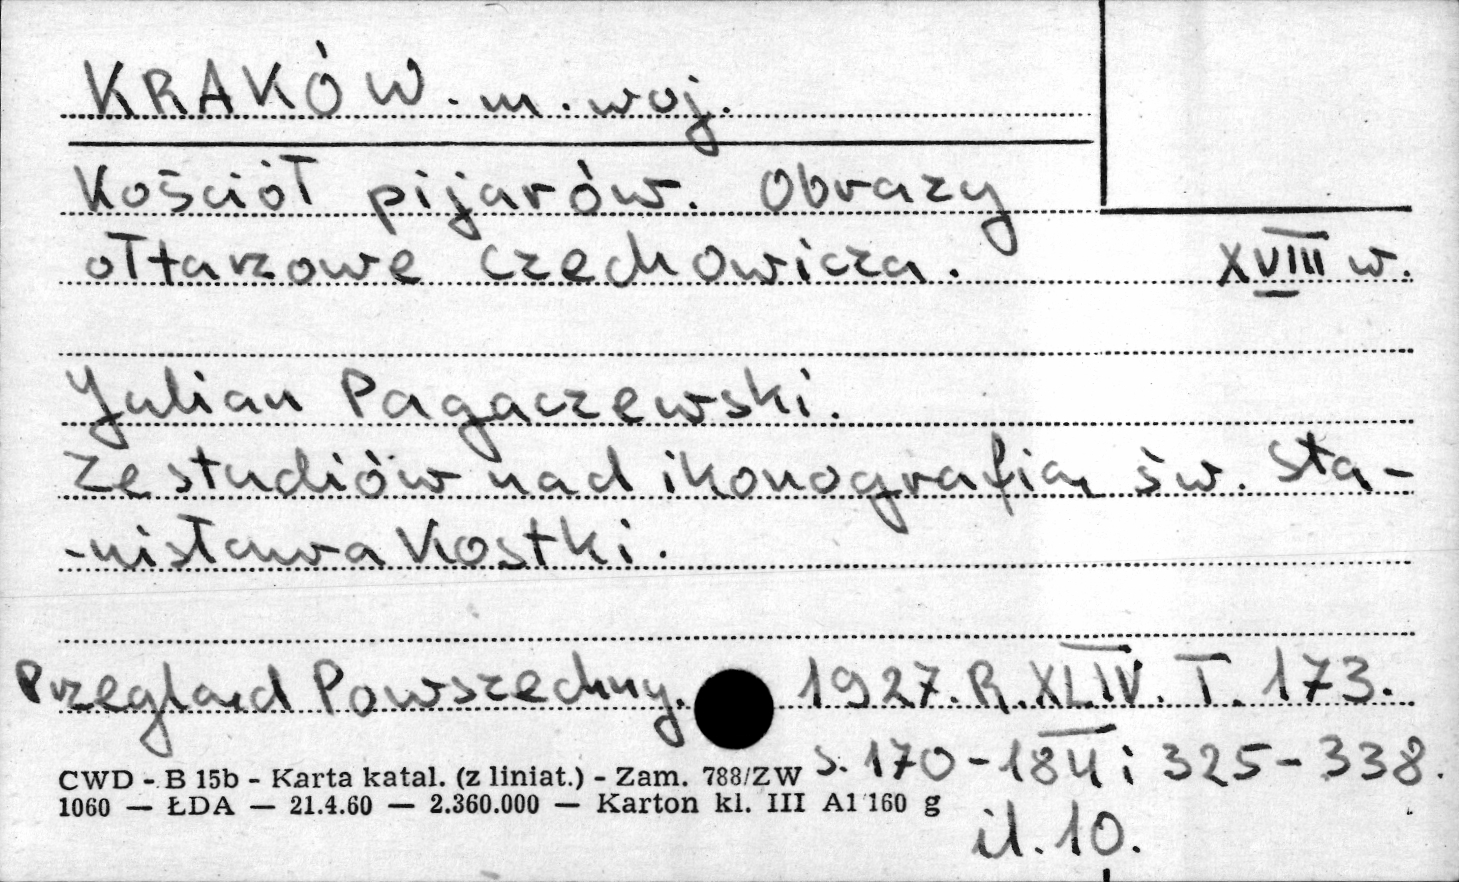 KRAKÓW. m. woj.
Kościół pijarów. Obrazy
ołtarzowe Czechowicza. XVIII w.
Julian Pagaczewski.
Ze studiów nad ikonografią św. Sta-
-nisława Kostki.
Przegląd Powszechny. 1927. R. XLIV. T. 173.
s. 170-184 i 325-338.
il. 10.
CWD - B 15b - Karta katal. (z liniat.) - Zam. 788/ZW
1060 — ŁDA — 21.4.60 — 2.360.000 — Karton kl. III A1 160 g